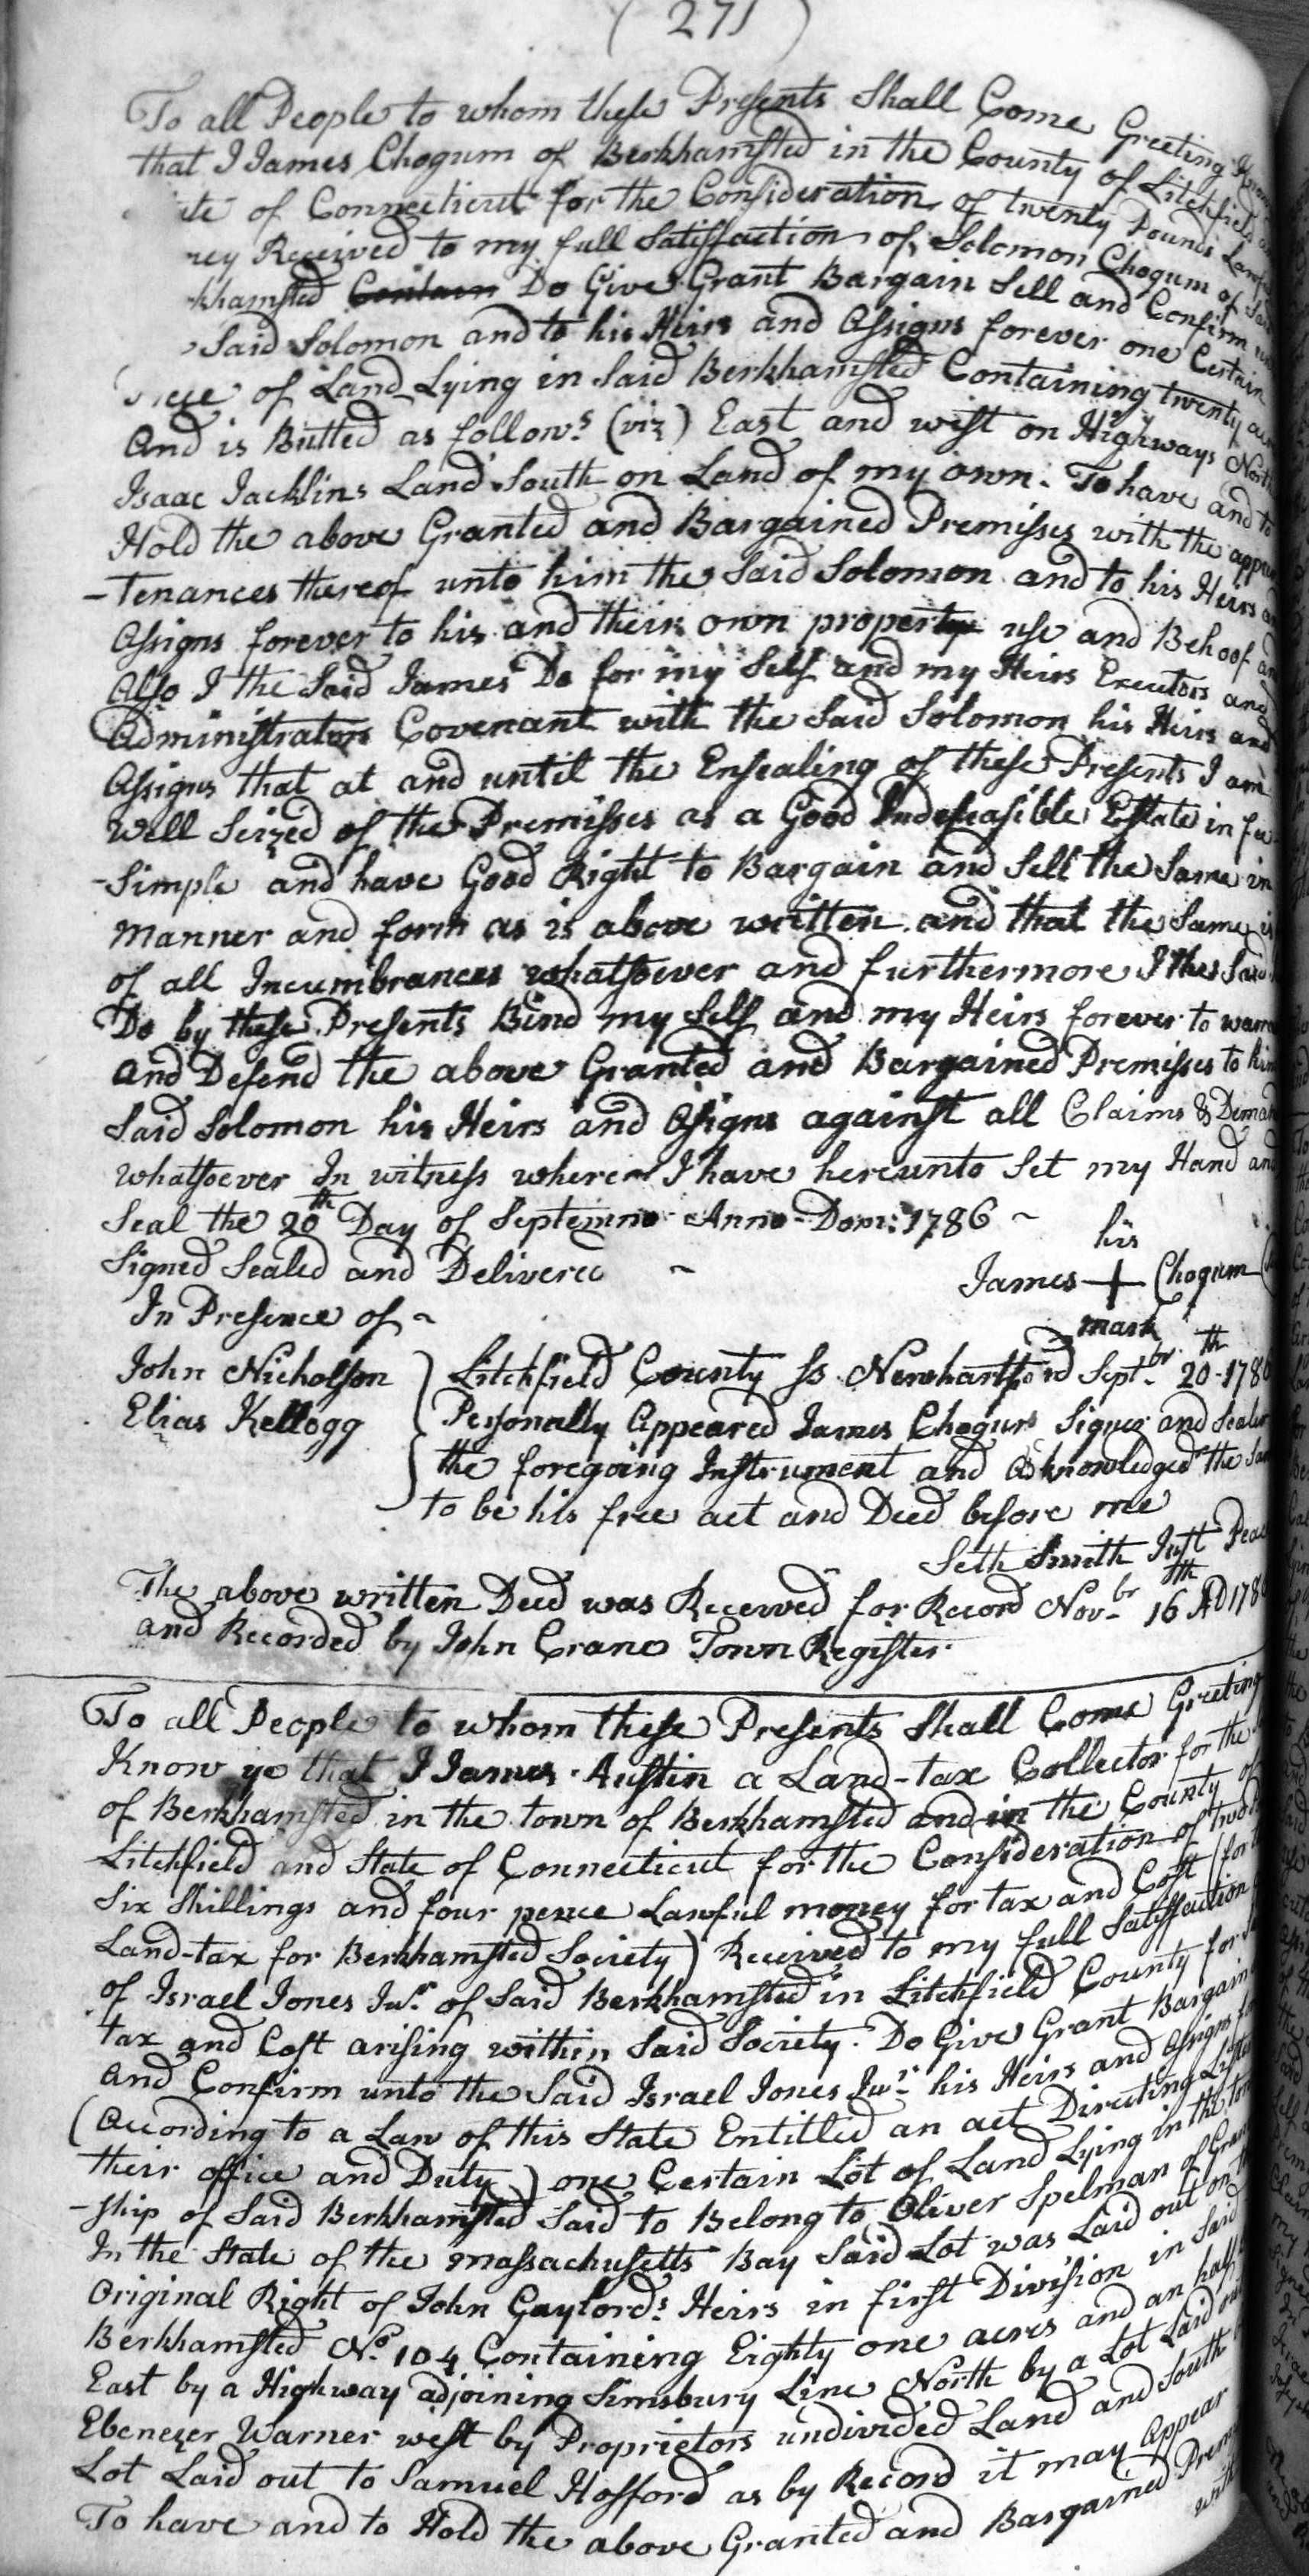 ( 271 )
To all People to whom these Presents Shall Come Greeting Know
that I James Chogum of Berkhamsted in the County of Litchfield
of Connecticut for the Consideration of twenty Pounds Lawful
ney Received to my full Satisfaction of Solomon Chogum of Said
khamsted Do Give Grant Bargain Sell and Confirm
Said Solomon and to his Heirs and Assigns forever one Certain
Piece of Land Lying in Said Berkhamsted Containing twenty
And is Butted as follows (viz) East and west on Highways North
Isaac Jacklins Land South on Land of my own. To have and to
Hold the above Granted and Bargained Premisses with the appur
-tenances thereof unto him the Said Solomon and to his Heirs
Assigns forever to his and their own property use and Behoof
Also I the Said James Do for my Self and my Heirs Executors and
Administrators Covenant with the Said Solomon his Heirs and
Assigns that at and until the Ensealing of these Presents I am
Well Seized of the Premisses as a Good Indefeasible Estate in fee
-Simple and have Good Right to Bargain and Sell the Same in
Manner and form as is above written and that the Same is
of all Incumbrances whatsoever and furthermore I the Said
Do by these Presents Bind my Self and my Heirs forever to warra
and Defend the above Granted and Bargained Premisses to him
Said Solomon his Heirs and Assigns against all Claims & Deman
whatsoever In witness whereof I have hereunto Set my Hand and
Seal the 20th Day of Septemr Anno Dom: 1786 ~
Signed Sealed and Delivered ~
his
James + Chogum
mark
In Presence of ~
John Nicholson
Elias Kellogg
Litchfield County Ss Newhartford Septbr 20th 178
Personally Appeared James Chogum Signer and Sealer
the foregoing Instrument and Acknowledged the Sa
to be his free act and Deed before me
Seth Smith Just Peac
The above written Deed was Received for Record Novbr 16th AD 178
and Recorded by John Crane Town Register
To all People to whom these Presents Shall Come Greeting
Know ye that I James Austin a Land-tax Collector for the
of Berkhamsted in the town of Berkhamsted and in the County of
Litchfield and State of Connecticut for the Consideration of two
Six Shillings and four pence Lawful money for tax and Cost (for
Land-tax for Berkhamsted Society) Received to my full Satisfaction
of Israel Jones Junr of Said Berkhamsted in Litchfield County for
tax and Cost arising within Said Society. Do Give Grant Bargain
and Confirm unto the Said Israel Jones Junr his Heirs and Assigns
(According to a Law of this State Entitled an act Directing Listers
their office and Duty) one Certain Lot of Land Lying in the tow
-ship of Said Berkhamsted Said to Belong to Oliver Spelman of
In the State of the Massachusetts Bay Said Lot was Laid out on
Original Right of John Gaylords Heirs in first Division in Said
Berkhamsted No 104 Containing Eighty one acres and an half
East by a Highway adjoining Simsbury Line North by a Lot Laid out
Ebenezer Warner west by Proprietors undivided Land and South
Lot Laid out to Samuel Hosford as by Record it may Appear
To have and to Hold the above Granted and Bargained Prem
with